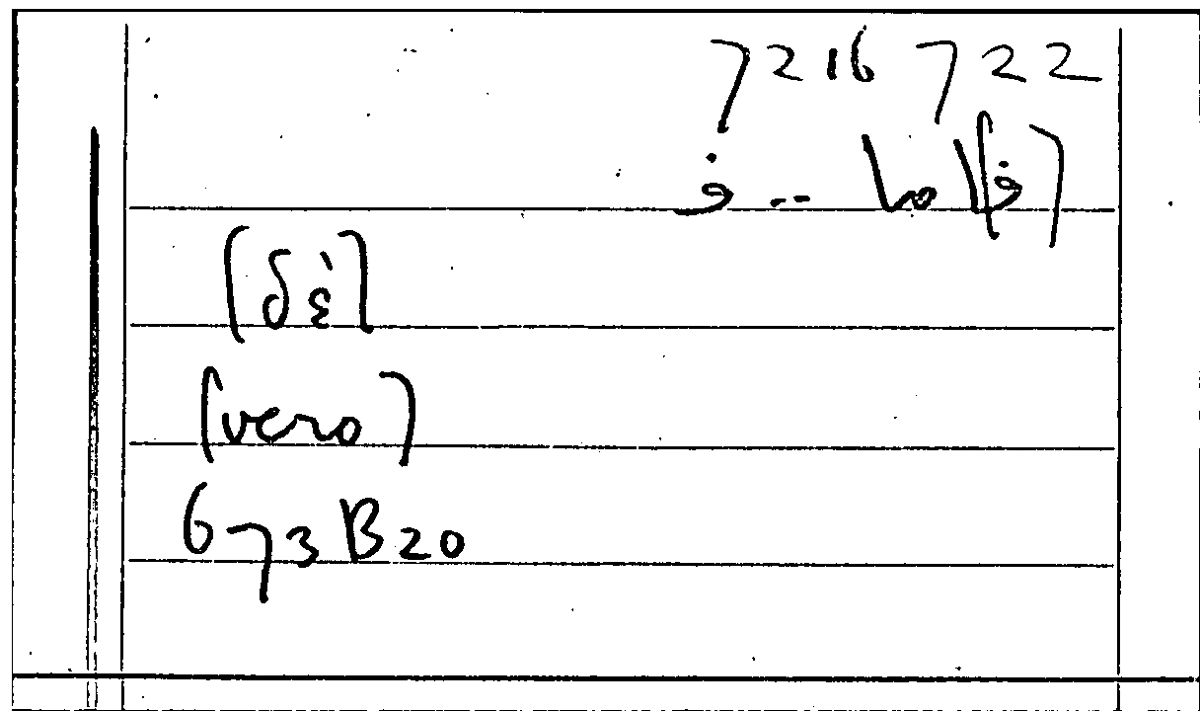 7216 722
[ف] اما .. ف
[δὲ]
[vero]
673B20